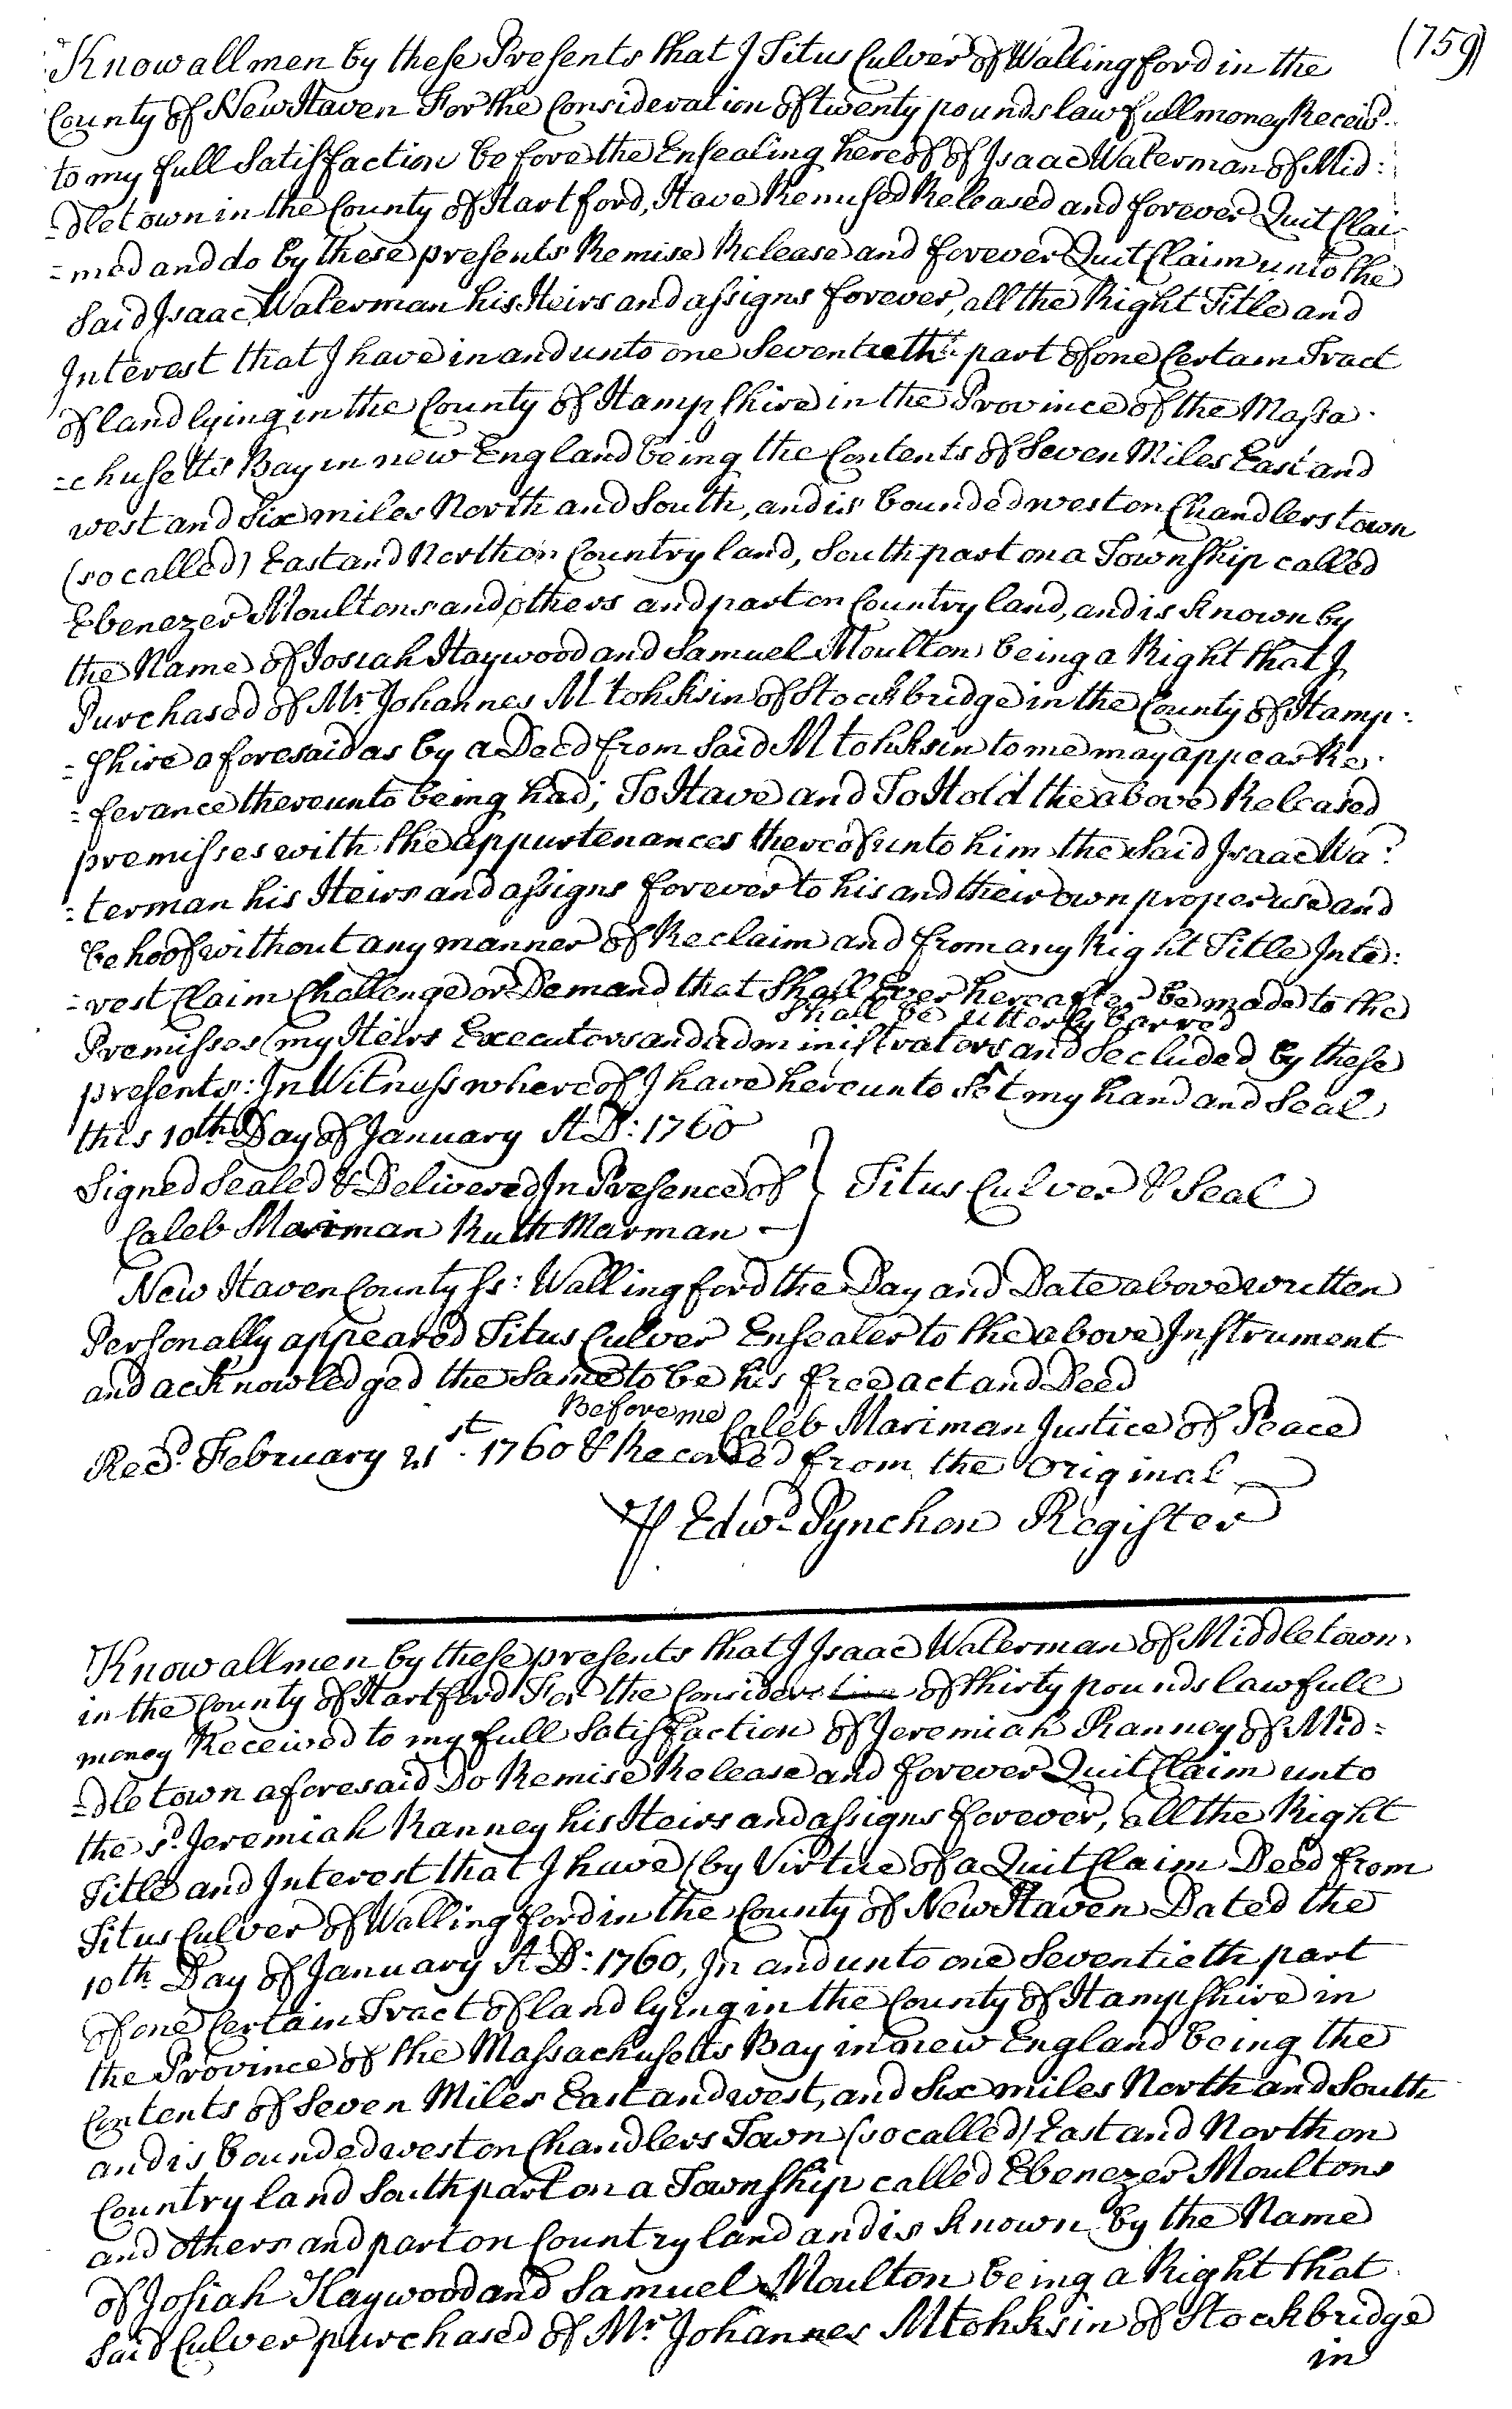 (759)
Know all men by these Presents that I Titus Culver of Wallingford in the
County of New Haven For the Consideration of twenty pounds lawfull money Receiv'd
to my full Satisfaction before the Ensealing hereof of Isaac Waterman of Mid:
=dletown in the County of Hartford, Have Remised Released and forever Quit Clai-
=med and do by these presents Remise Release and forever Quit Claim unto the
Said Isaac Waterman his Heirs and assigns forever, all the Right Title and
Interest that I have in and unto one Seventieth part of one Certain Tract
of land lying in the County of Hampshire in the Province of the Massa-
=chusetts Bay in new England being the Contents of Seven Miles East and
west and Six miles North and South, and is bounded west on Chandlers town
(so called) East and North on Country land, South part on a Township called
Ebenezer Moultons and others and part on Country land, and is known by
the Name of Josiah Haywood and Samuel Moulton being a Right that I
Purchased of Mr. Johannes Mtohksin of Stockbridge in the County of Hamp-
=shire aforesaid as by a Deed from Said Mtohksin to me may appear Re-
=ferance thereunto being had; To Have and To Hold the above Released
premisses with the appurtenances thereof unto him the Said Isaac Wa-
=terman his Heirs and assigns forever to his and their own proper use and
behoof without any manner of Reclaim and from any Right Title Inte:
=rest Claim Challenge or Demand that Shall Ever hereafter be made to the
Shall be utterly barred
Premisses (my Heirs Executors and administrators and Secluded by these
presents: In Witness whereof I have hereunto Set my hand and Seal
this 10th Day of January A.D: 1760
Signed Sealed & Delivered In Presence of } Titus Culver & Seal
Caleb Mariman Ruth Marman
New Haven County Ss: Wallingford the Day and Date above written
Personally appeared Titus Culver Ensealer to the above Instrument
and acknowledged the Same to be his free act and Deed
Before me Caleb Mariman Justice of Peace
Recd. February 21st. 1760 & Recorded from the Original
P Edwd. Pynchon Register
Know all men by these presents that I Isaac Waterman of Middletown
in the County of Hartford For the Consideration of thirty pounds lawfull
money Received to my full Satisfaction of Jeremiah Ranney of Mid=
=dletown aforesaid Do Remise Release and forever Quit Claim unto
the sd. Jeremiah Ranney his Heirs and assigns forever, all the Right
Title and Interest that I have (by Virtue of a Quit Claim Deed from
Titus Culver of Wallingford in the County of New Haven Dated the
10th Day of January A.D: 1760, In and unto one Seventieth part
of one Certain Tract of land lying in the County of Hampshire in
the Province of the Massachusetts Bay in new England being the
Contents of Seven Miles East and west, and Six miles North and South
and is bounded west on Chandlers Town (so called) East and North on
Country land South part on a Township called Ebenezer Moultons
and others and part on Country land and is known by the Name
of Josiah Haywood and Samuel Moulton being a Right that
Said Culver purchased of Mr. Johannes Mtohksin of Stockbridge
in